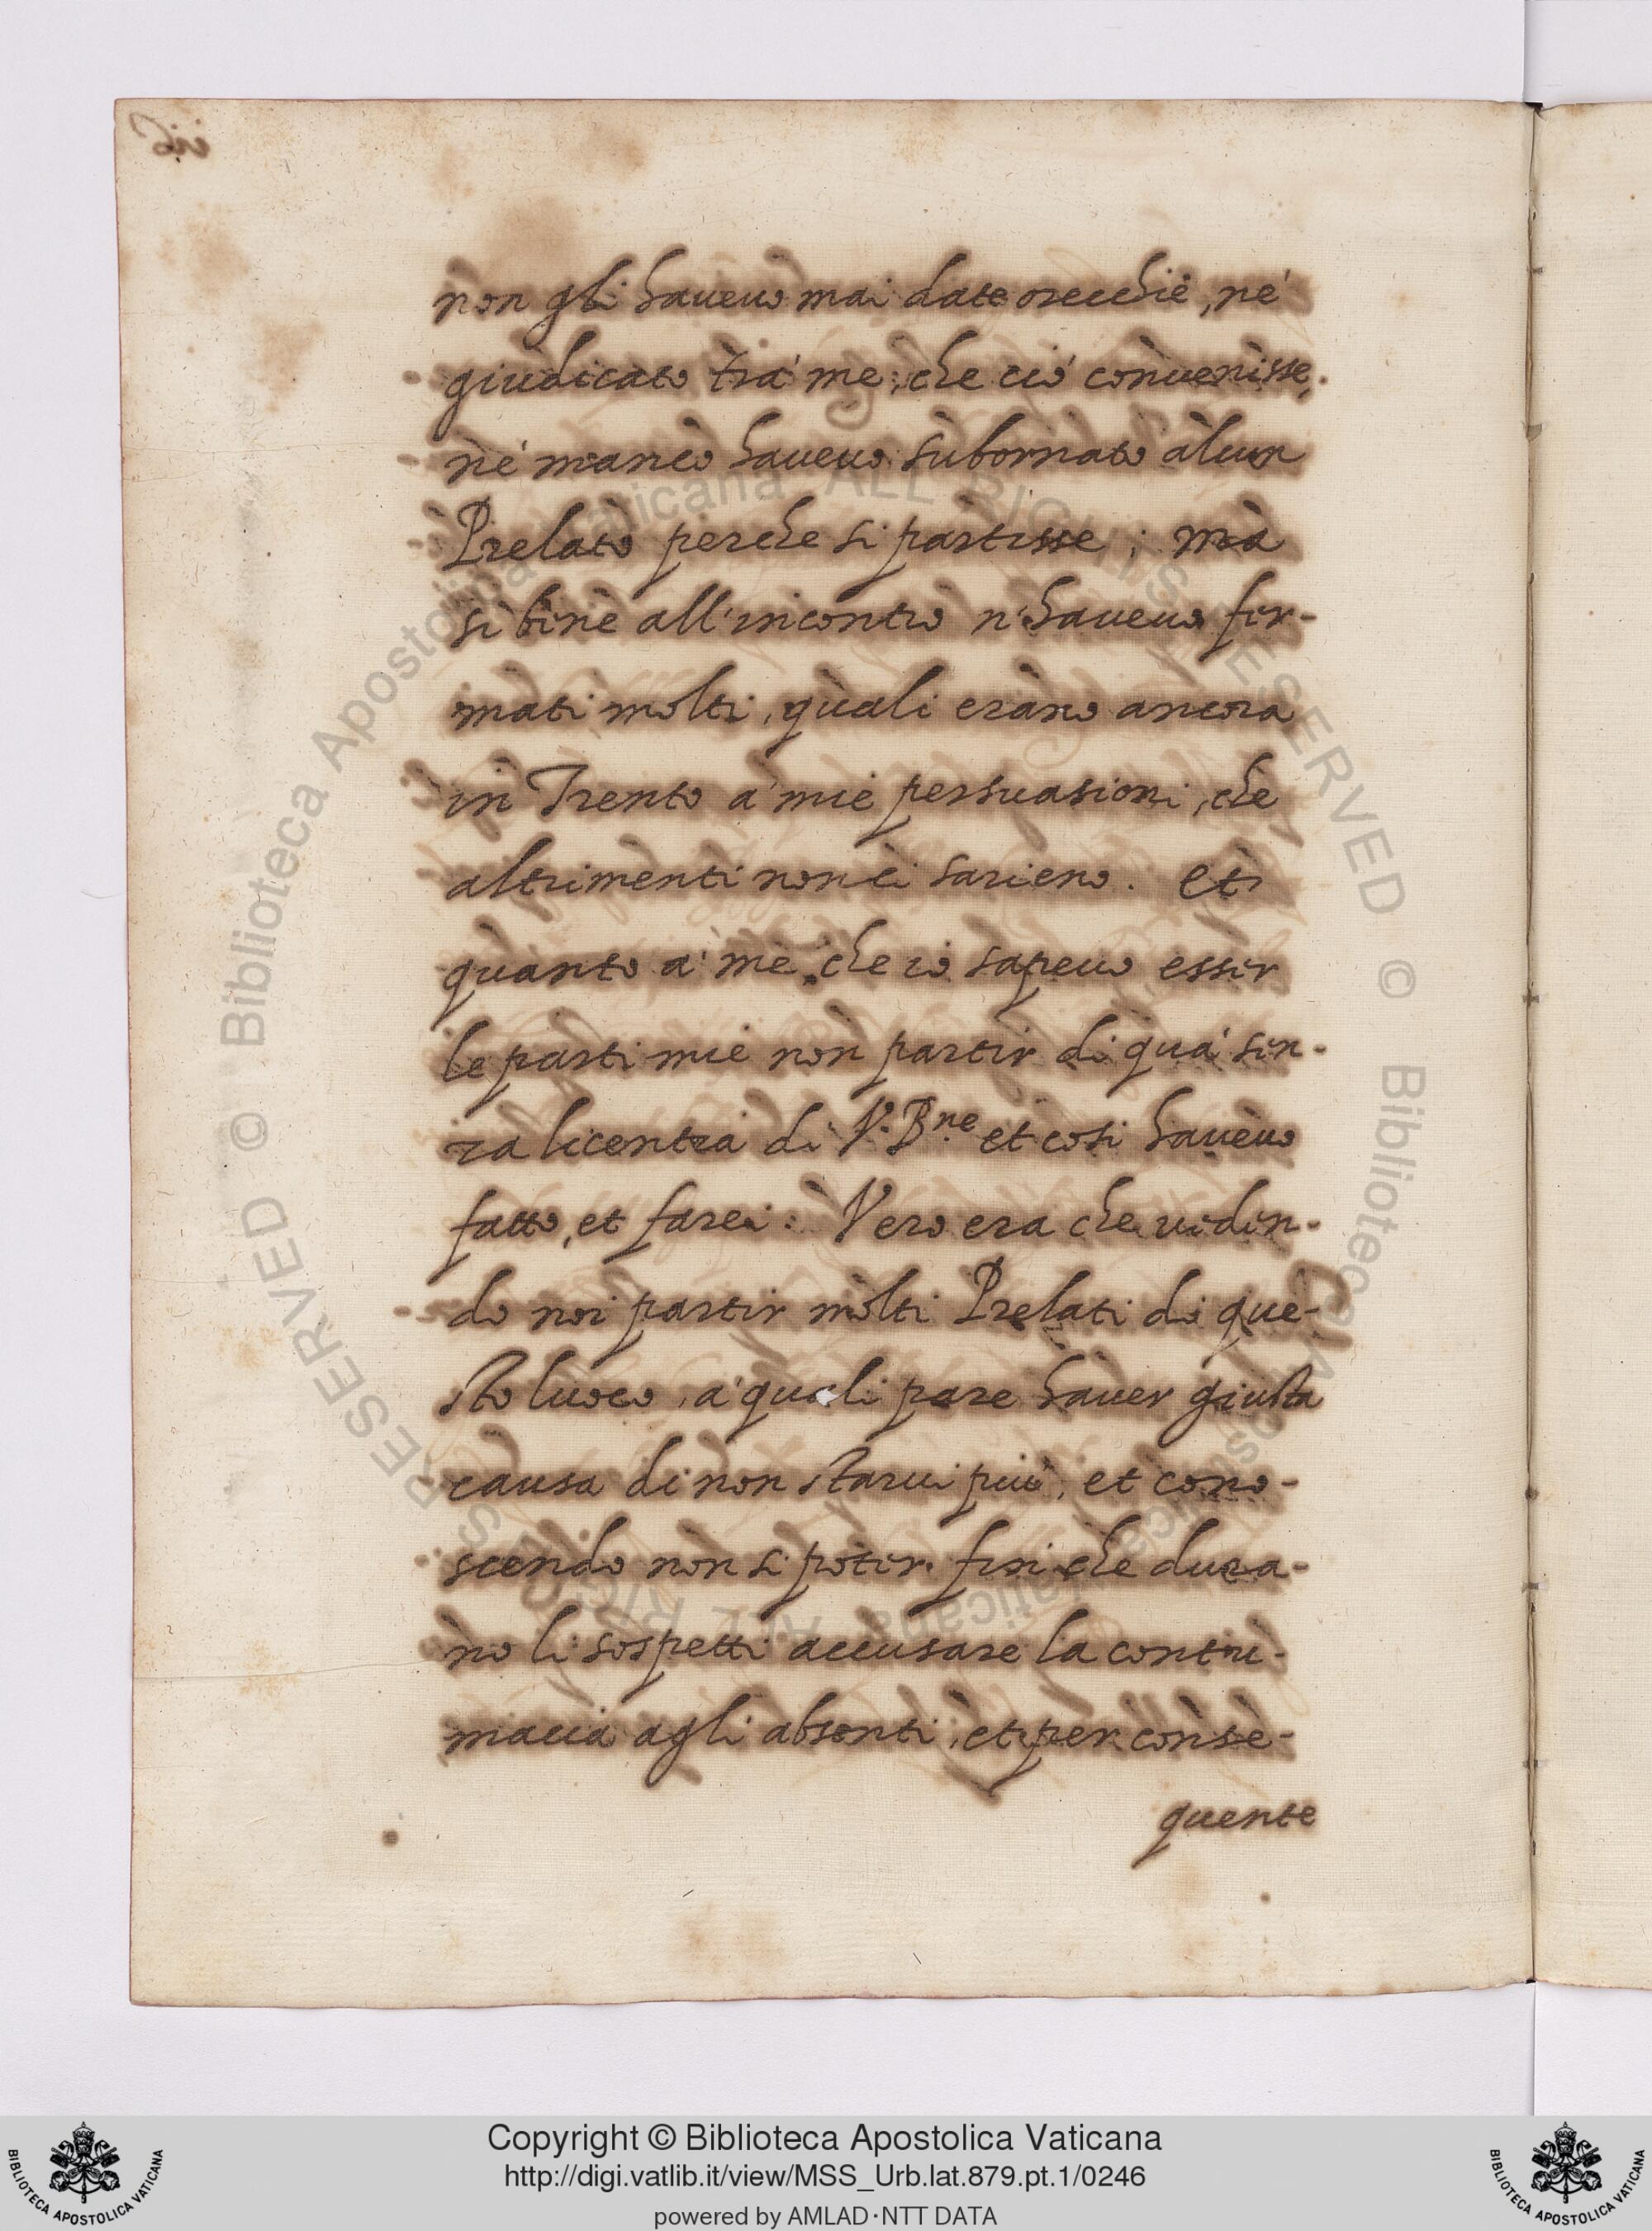 non gli haueuo mai date orecchie, né
giudicato trà me, che ciò conuenisse,
né manco haueuo subornato alcun
Prelato perche si partisse; mà
si bene all'incontro n'haueuo fer-
mati molti, quali erano ancora
in Trento à mie persuasioni, che
altrimenti non ci sarieno. et
quanto à me, che io sapeuo esser
le parti mie non partir di quà sen-
za licentia di V. B.ne et cosi haueuo
fatto, et farei. Vero era che uiden-
do noi partir molti Prelati di que-
sto luoco, à quali pare hauer giusta
causa di non starui più, et cono-
scendo non si poter fin che dura-
no li sospetti accusare la contu-
macia agli absenti, et per conse-
quente
Copyright © Biblioteca Apostolica Vaticana
http://digi.vatlib.it/view/MSS_Urb.lat.879.pt.1/0246
powered by AMLAD·NTT DATA
BIBLIOTECA APOSTOLICA VATICANA
BIBLIOTECA APOSTOLICA VATICANA